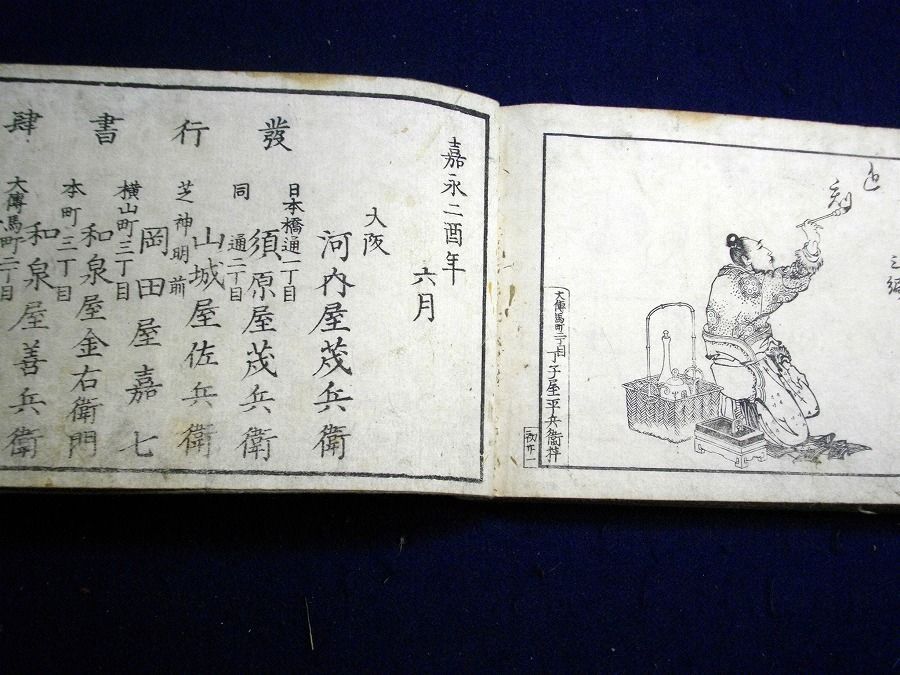 近刻
大傳馬町二丁目 丁子屋平兵衞梓
初廿一
嘉永二酉年
六月
發行書肆
大阪
河内屋茂兵衛
日本橋通一丁目
須原屋茂兵衛
同 通二丁目
山城屋佐兵衛
芝神明前
岡田屋嘉七
横山町三丁目
和泉屋金右衛門
本町三丁目
和泉屋善兵衛
大傳馬町二丁目